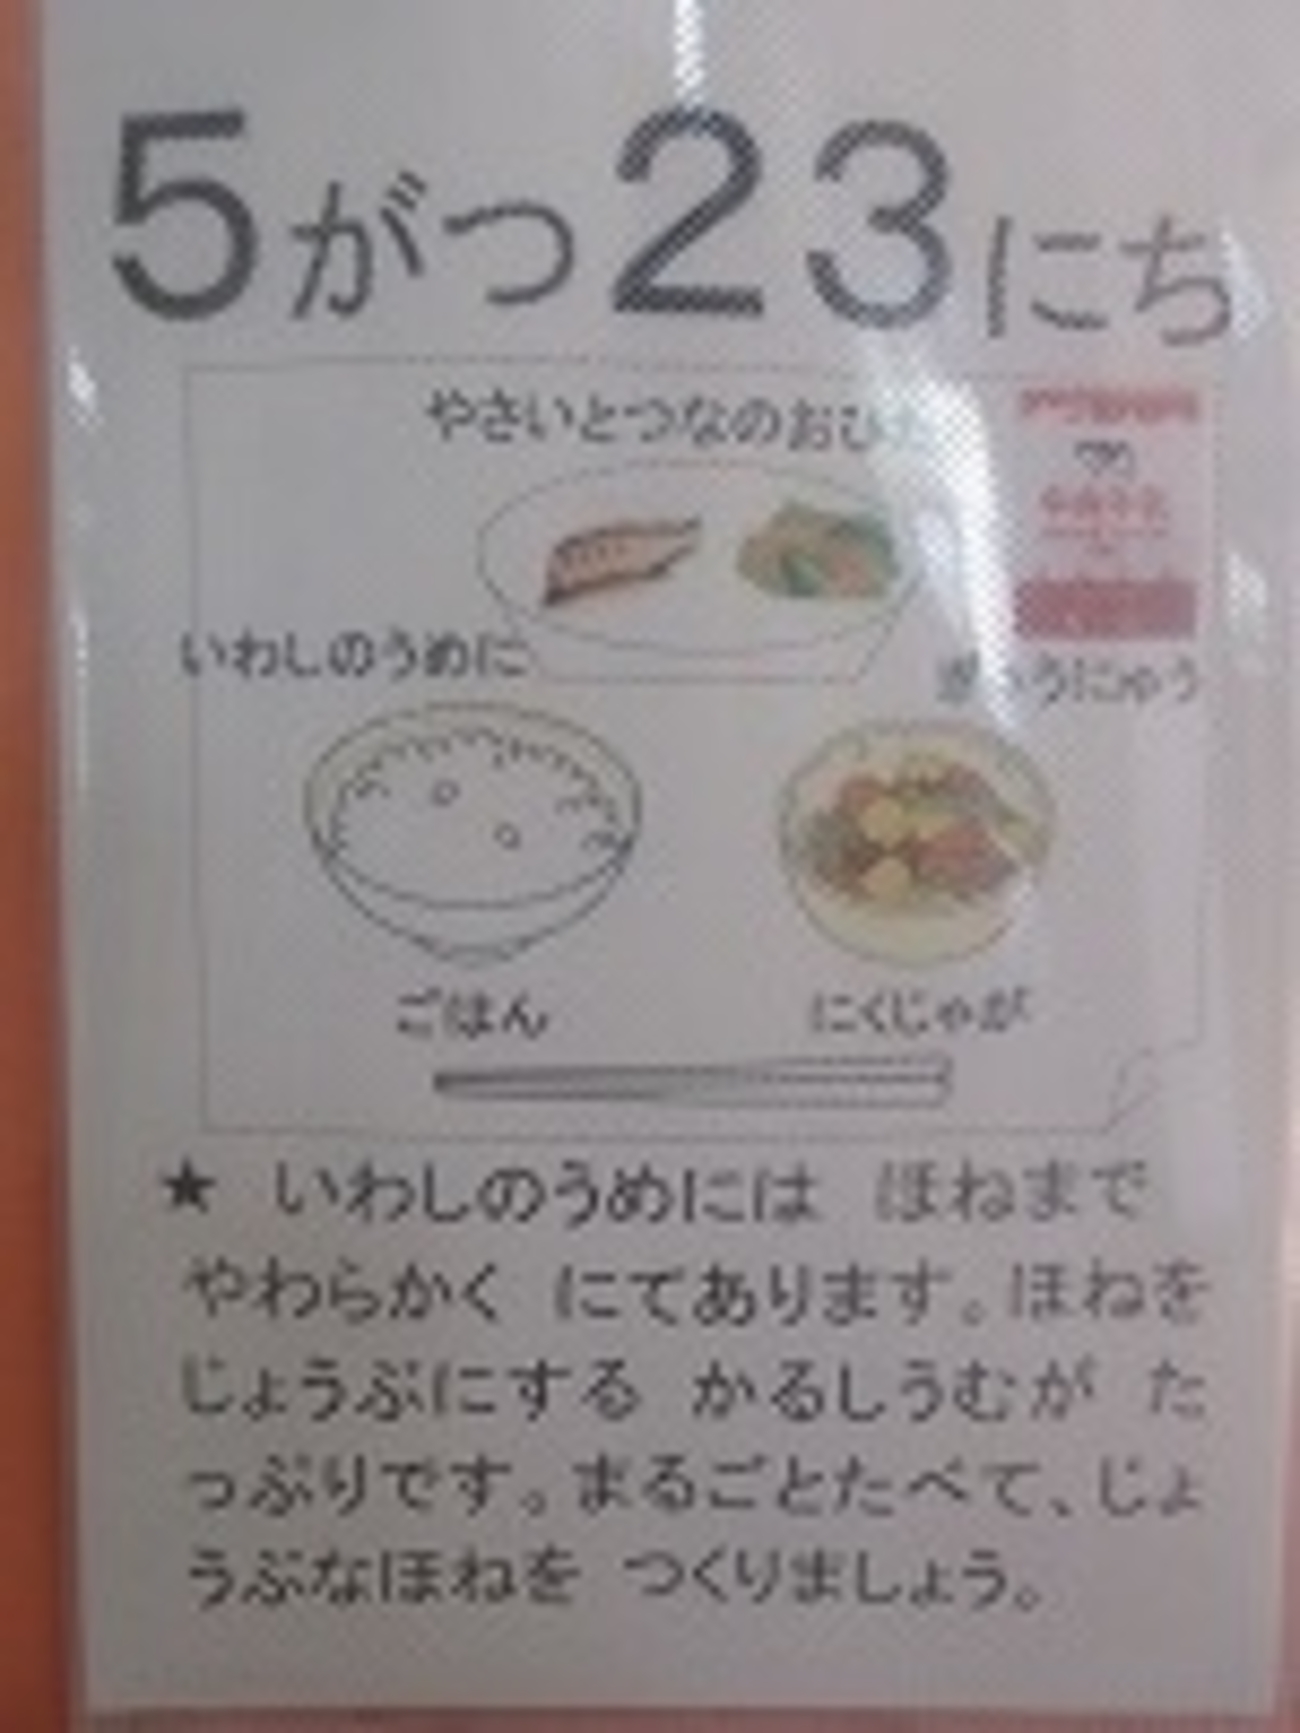 5がつ23にち
やさいとつなのおひ
いわしのうめに
うにゅう
ごはん
にくじゃが
★ いわしのうめには ほねまで
やわらかく にてあります。ほねを
じょうぶにする かるしうむが た
っぷりです。まるごとたべて、じょ
うぶなほねを つくりましょう。